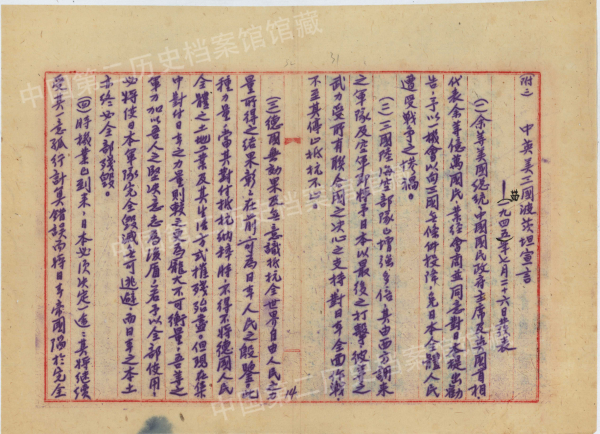 附二 中英美三國波茨坦宣言
(一九四五年七月二十六日發表)
(一)余等美國總統、中國國民政府主席及英國首相
代表余等億萬國民業經會商並同意對日本提出勸
告,予以機會,以向三國無條件投降,免日本全體人民
遭受戰爭之慘禍。
(二)三國陸海空部隊已增強多倍,其由西方調來
之軍隊及空軍即將予日本以最後之打擊,彼等之
武力受所有聯合國之決心之支持對日本全面作戰,
不至其停止抵抗不止。
(三)德國無効果及無意識抵抗全世界自由人民之力
量所得之結果彰彰在前,可為日本人民之殷鑒,此
種力量當其對付抵抗納粹時不得不將德國人民
全體之土地工業及其生活方式摧殘殆盡,但現在集
中對付日本之力量則較之更為龐大不可衡量,吾等之
軍力加以吾人之堅決意志為後盾,若予以全部使用,
必將使日本軍隊完全毀滅,無可逃避,而日本之本土
亦終必全部殘毀。
(四)時機業已到來,日本必須決定一途:其將繼續
受其一意孤行計算錯誤而將日本帝國陷於完全
14
31
中国第二历史档案馆馆藏
中国第二历史档案馆馆藏